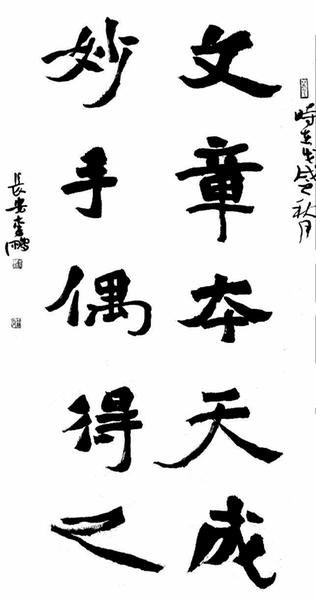 時在戊戌秋月
文章本天成
妙手偶得之
長安李鵬